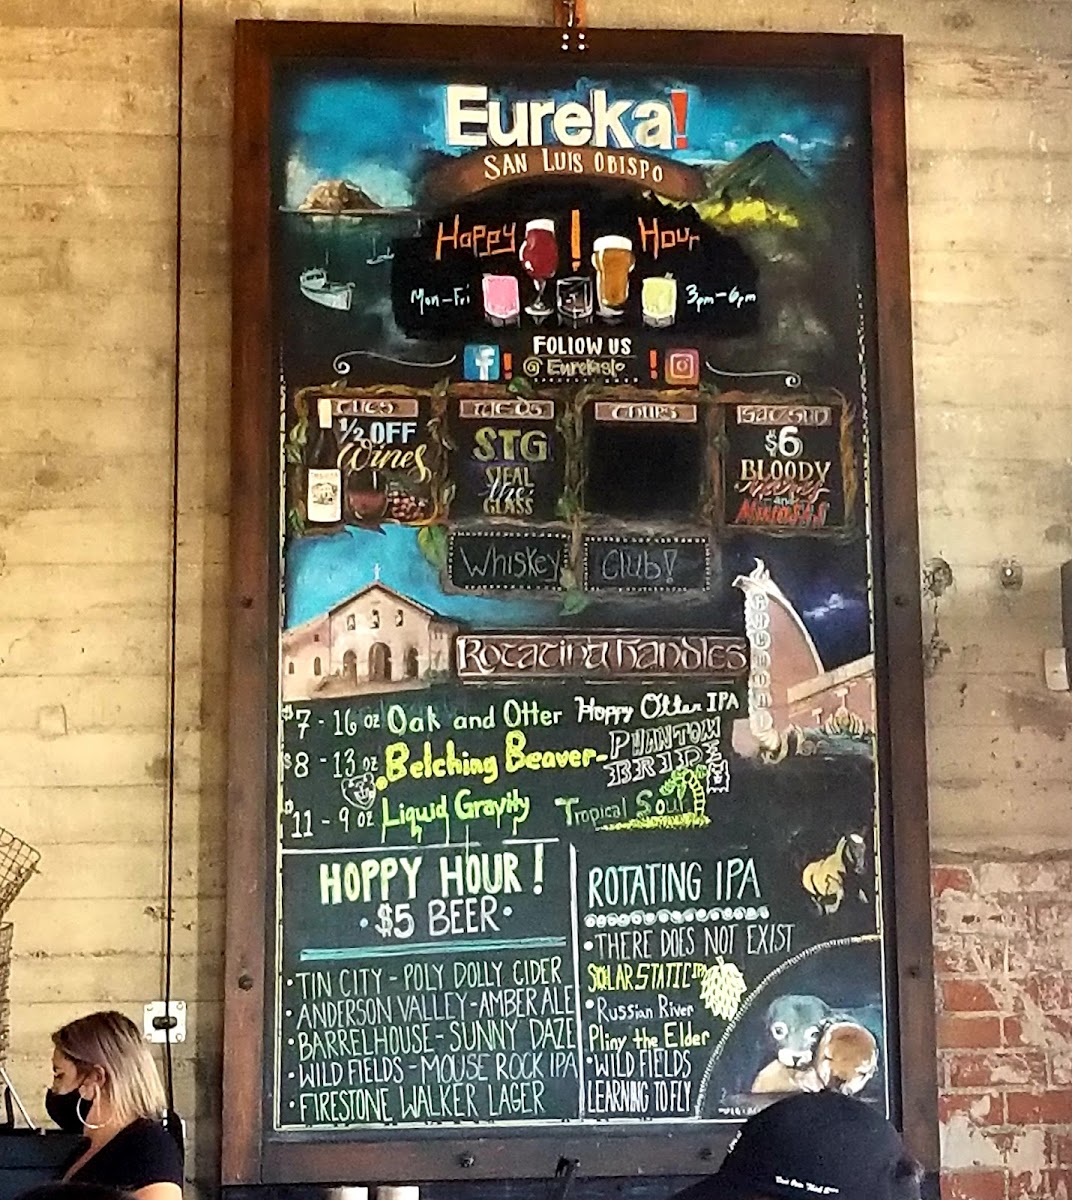 Eureka!
SAN LUIS OBISPO
Happy ! Hour
Mon-Fri 3pm-6pm
FOLLOW US
@Eurekaslo
TUES
1/2 OFF
Wines
WEDS
STG
STEAL
the
GLASS
THURS
SAT-SUN
$6
BLOODY
Marys
and
Mimosas
Whiskey Club!
Rotating Handles
FREMONT
$7 - 16 oz Oak and Otter Hoppy Otter IPA
$8 - 13 oz Belching Beaver- PHANTOM BRIDE
$11 - 9 oz Liquid Gravity Tropical Sour
HOPPY HOUR!
• $5 BEER •
• TIN CITY - POLY DOLLY CIDER
• ANDERSON VALLEY - AMBER ALE
• BARRELHOUSE - SUNNY DAZE
• WILD FIELDS - MOUSE ROCK IPA
• FIRESTONE WALKER LAGER
ROTATING IPA
• THERE DOES NOT EXIST
SOLAR STATIC IPA
• Russian River
Pliny the Elder
• WILD FIELDS
LEARNING TO FLY